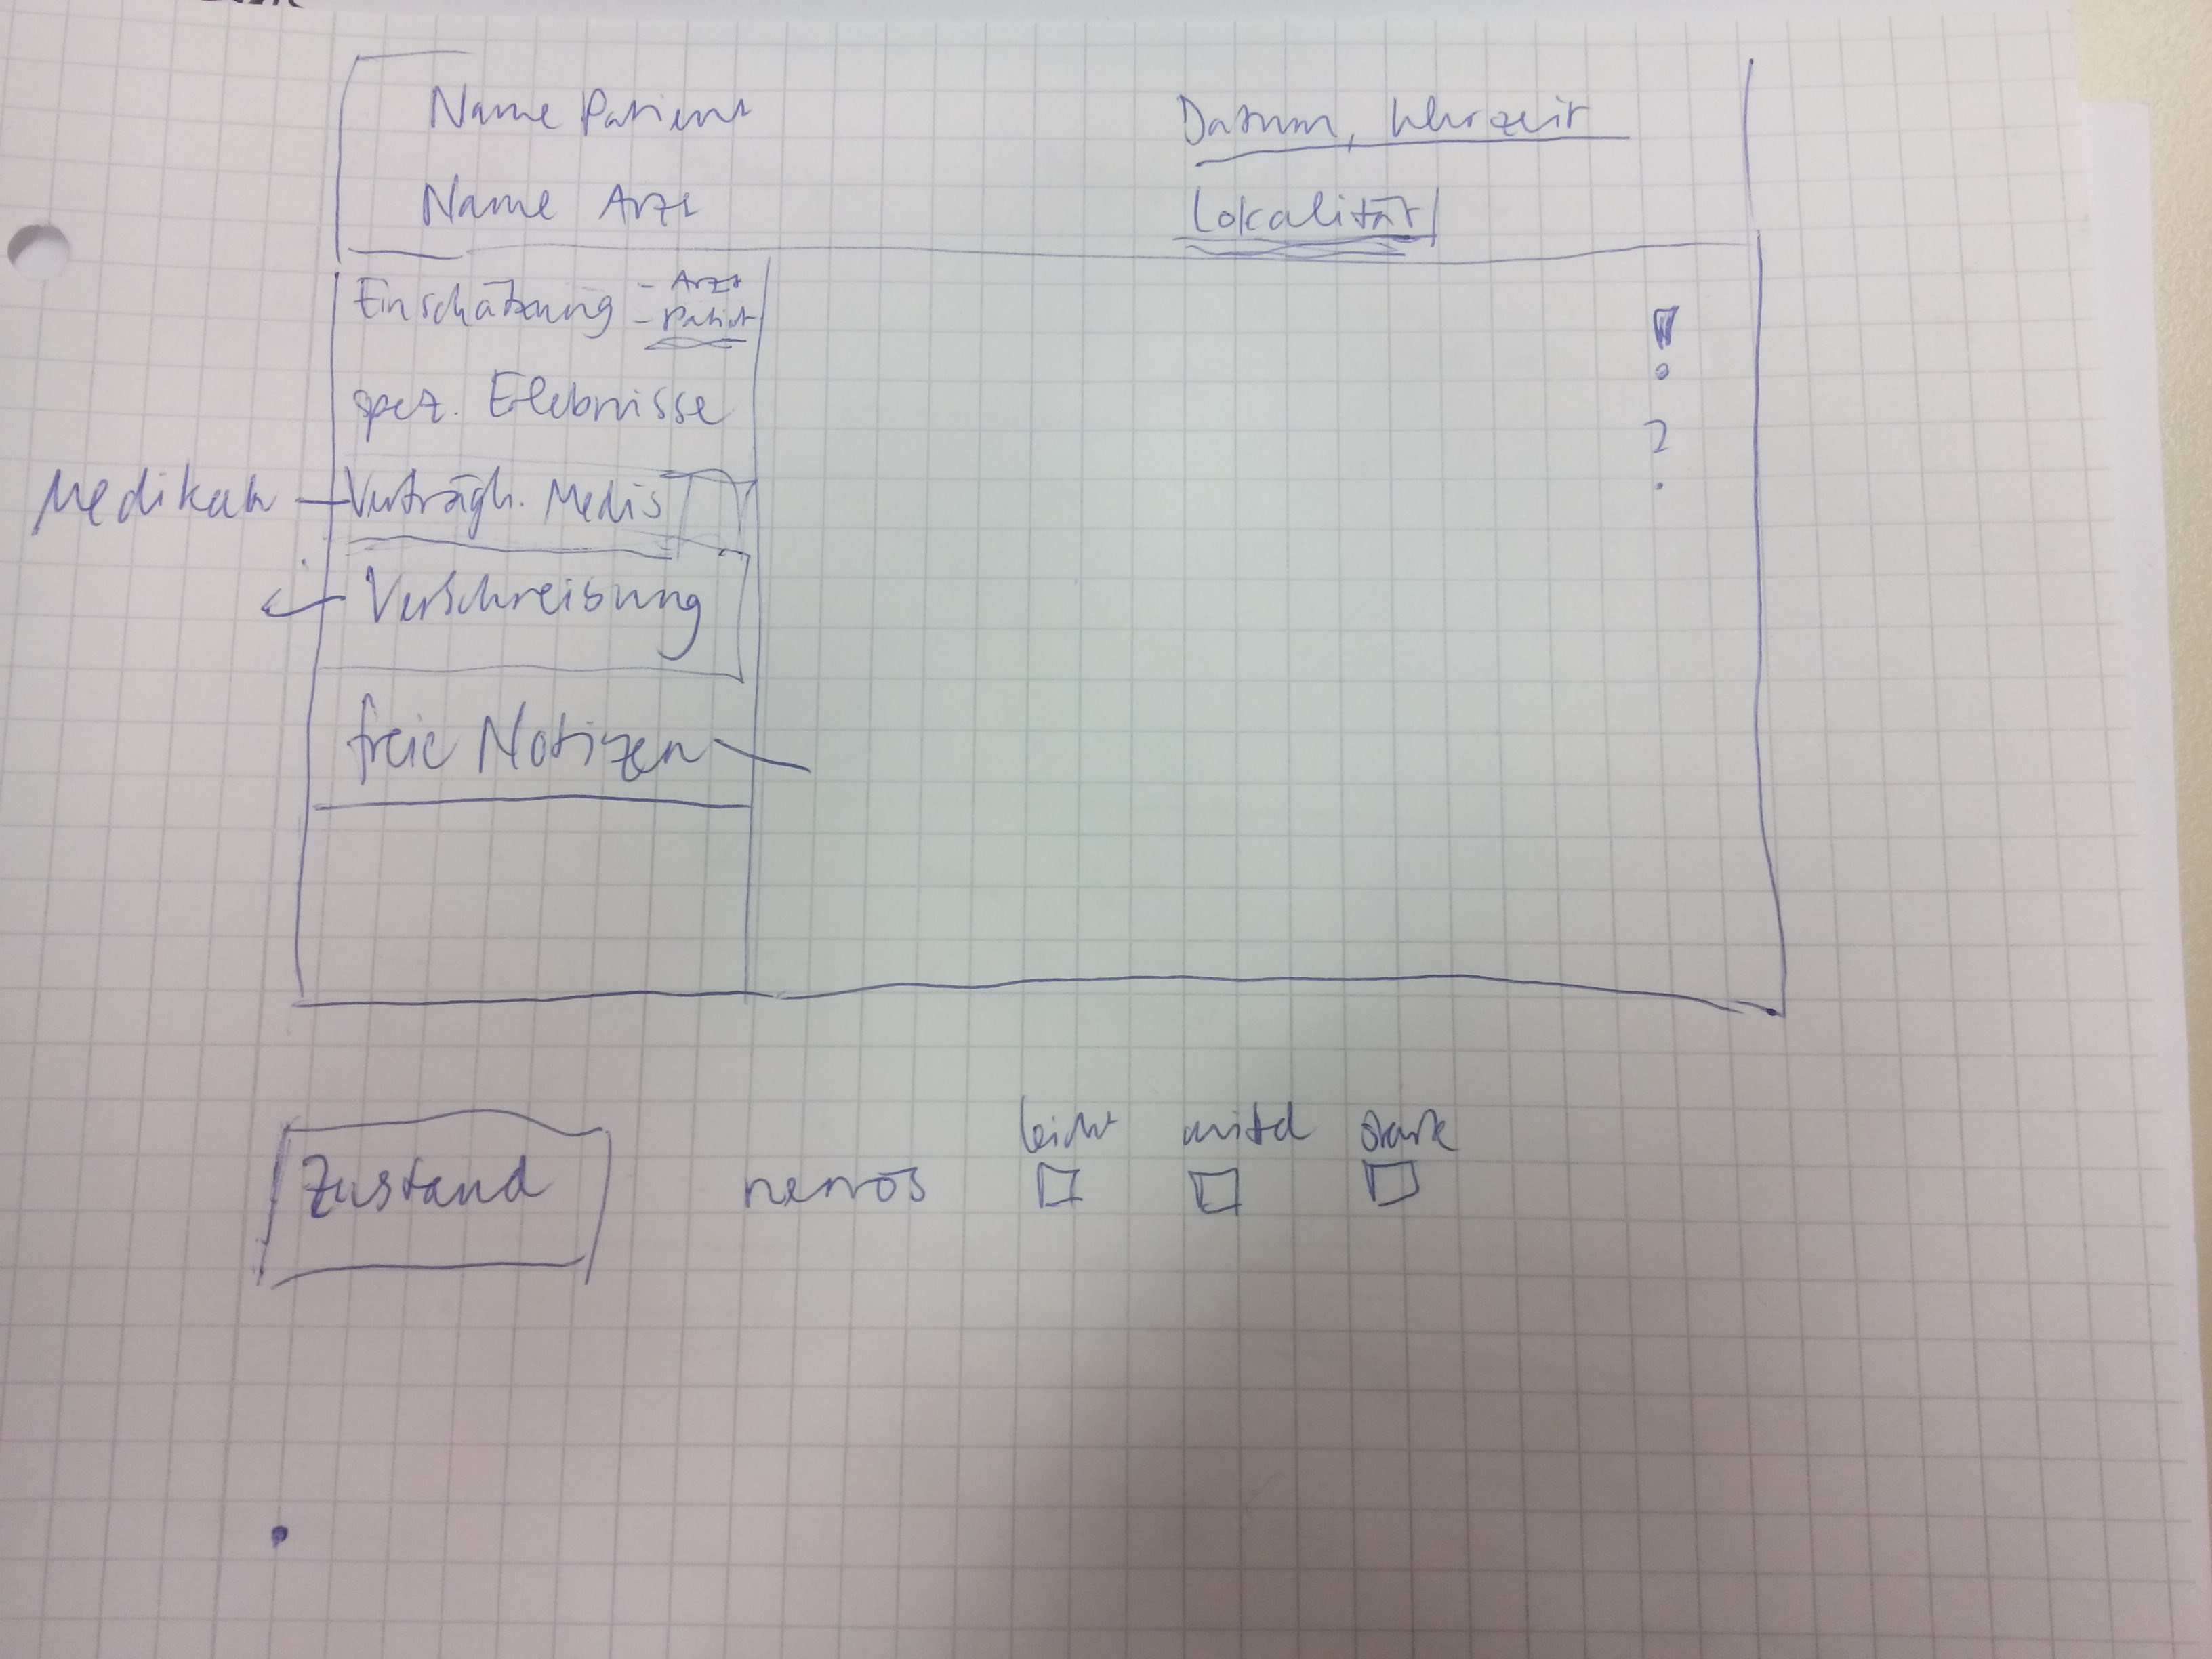 Name Patient
Datum, Uhrzeit
Name Arzt
Lokalität
Einschätzung - Arzt
- Patient
!
spez. Erlebnisse
?
Medikam Verträgh. Medis
Verschreibung
freie Notizen
leicht mittel stark
Zustand nervös